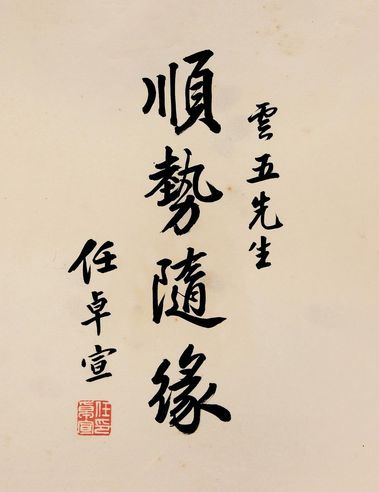 雲五先生
順勢隨緣
任卓宣
任卓宣印